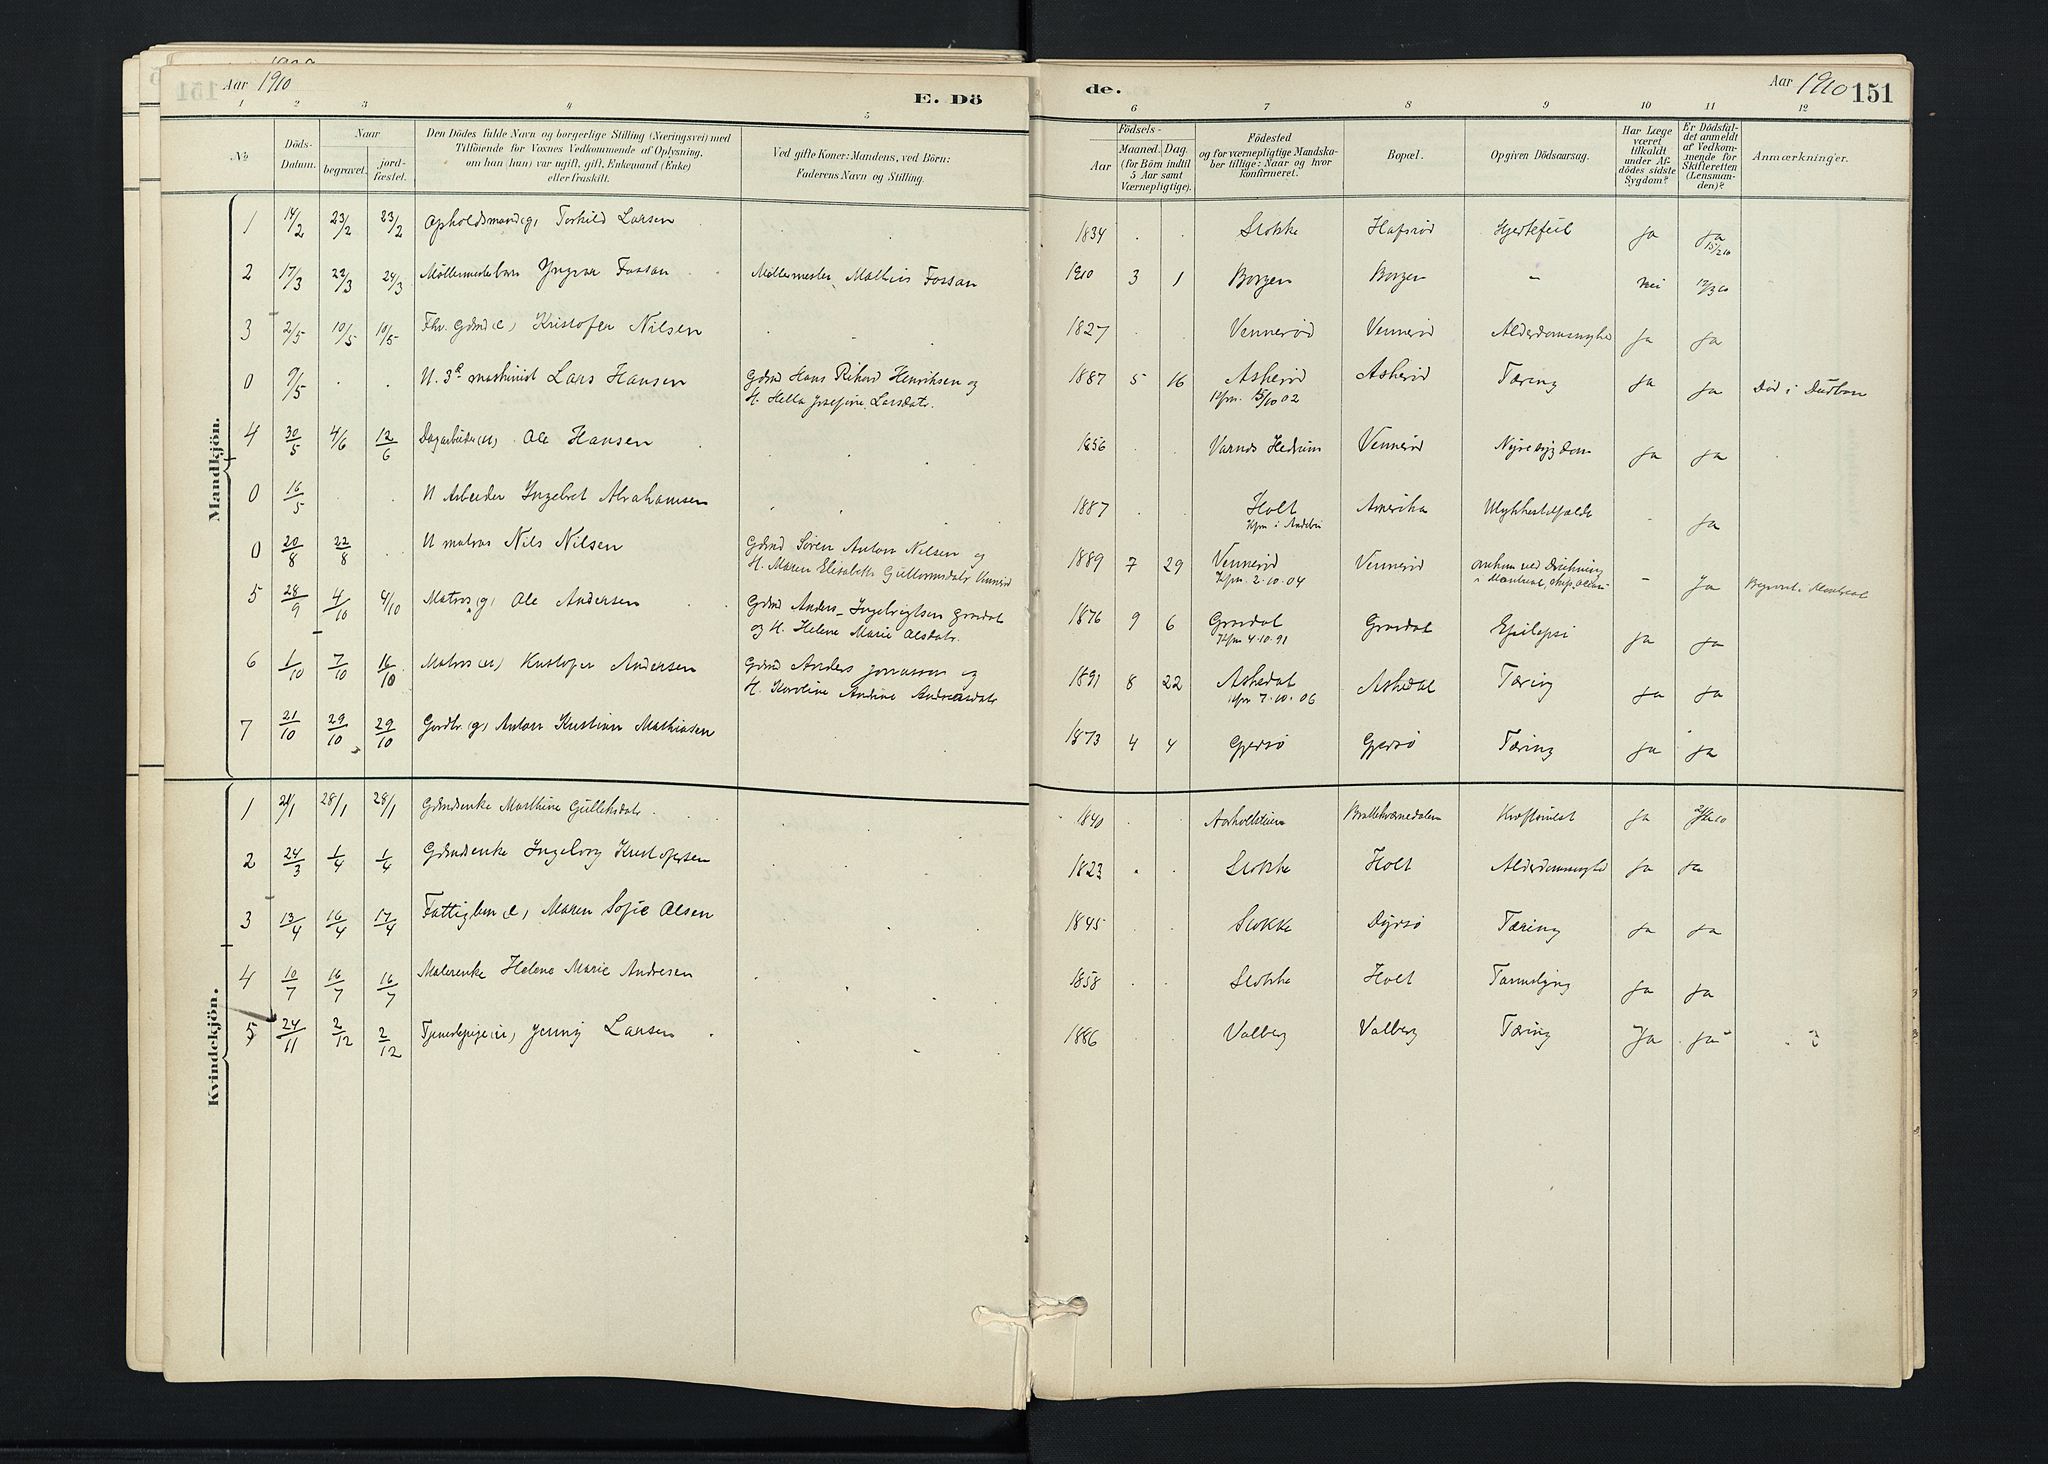 Aar 1910
E. Dö
de.
Aar 1910 151
1 2 3 4 5 6 7 8 9 10 11 12
No. Döds-Datum. Naar begravet. jord-fæstet. Den Dödes fulde Navn og borgerlige Stilling (Næringsvei) med Tilföiende for Voxnes Vedkommende af Oplysning, om han (hun) var ugift, gift, Enkemand (Enke) eller fraskilt. Ved gifte Koner: Mandens, ved Börn: Faderens Navn og Stilling. Födsels- Aar Maaned. Dag. (for Börn indtil 5 Aar samt Værnepligtige). Födested og for værnepligtige Mandskaber tillige: Naar og hvor konfirmeret. Bopæl. Opgiven Dödsaarsag. Har Læge været tilkaldt under Afdödes sidste Sygdom? Er Dödsfaldet anmeldt af Vedkommende for Skifteretten (Lensmanden)? Anmærkninger.
Mandkjön.
1 14/2 23/2 23/2 Opholdsmand (g) Torkild Larsen 1834 Stokke Hafsrød Hjertefeil Ja Ja 15/2 10
2 17/3 22/3 24/3 Møllermesterbarn Yngvar Fossan Møllermester Mathias Fossan 1910 3 1 Borgen Borgen — Nei 17/3 10
3 2/5 10/5 10/5 Fhv. Gdmd (e) Kristofer Nilsen 1827 Vennerød Vennerød Alderdomssvaghed Ja Ja
0 9/5 U. 3de maskinist Lars Hansen Gdmd Hans Rikard Henriksen og 1887 5 16 Askerød Askerød Tæring Ja Ja Død i Durban
H. Hella Josefine Larsdatr. Kfm. 15/10 02
4 30/5 4/6 12/6 Dagarbeider (u) Ole Hansen 1856 Varnes Hedrum Vennerød Nyresygdom Ja Ja
0 16/5 U Arbeider Ingebret Abrahamsen 1887 Holt Amerika Ulykkestilfælde - Ja
Kfm i Andebu
0 20/8 22/8 U matros Nils Nilsen Gdmd Søren Anton Nilsen og 1889 7 29 Vennerød Vennerød omkom ved Drukning - Ja Begravet i Montreal
H. Maren Elisabeth Guttormsdatr Vennerød Kfm. 2.10.04 i Montreal,
5 28/9 4/10 4/10 Matros (g) Ole Andersen Gdmd Anders Ingebrigtsen Gravdal 1876 9 6 Gravdal Gravdal Epilepsi Ja Ja
og H. Helene Marie Olsdatr. Kfm 4.10.91
6 1/10 7/10 16/10 Matros (u) Kristofer Andersen Gdmd Anders Jonassen og 1891 8 22 Askedal Askedal Tæring Ja Ja
H. Karoline Andine Andreasdatr Kfm 7.10.06
7 21/10 29/10 29/10 Gaardbr. (g) Anton Kristian Mathiasen 1873 4 4 Gjersø Gjersø Tæring Ja Ja
Kvindekjön.
1 21/1 28/1 28/1 Gdmdsenke Marthine Gulliksdatr. 1840 Aasholdtien Brattekværnedalen Kræftsvulst Ja
2 24/3 1/4 1/4 Gdmdsenke Ingeborg Kristofersen 1823 Stokke Holt Alderdomssvaghed Ja Ja
3 13/4 16/4 17/4 Fattiglem (e) Maren Sofie Olsen 1845 Stokke Dyrsø Tæring Ja Ja
4 10/7 16/7 16/7 Malerenke Helene Marie Andresen 1858 Stokke Holt Tarmslyng Ja Ja
5 24/11 2/12 2/12 Tjenestepige (u) Jenny Larsen 1886 Valberg Valberg Tæring Ja Ja